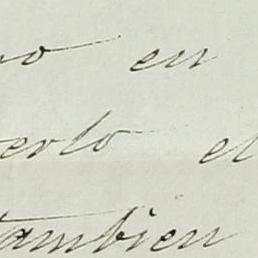 no en
erlo el
tambien